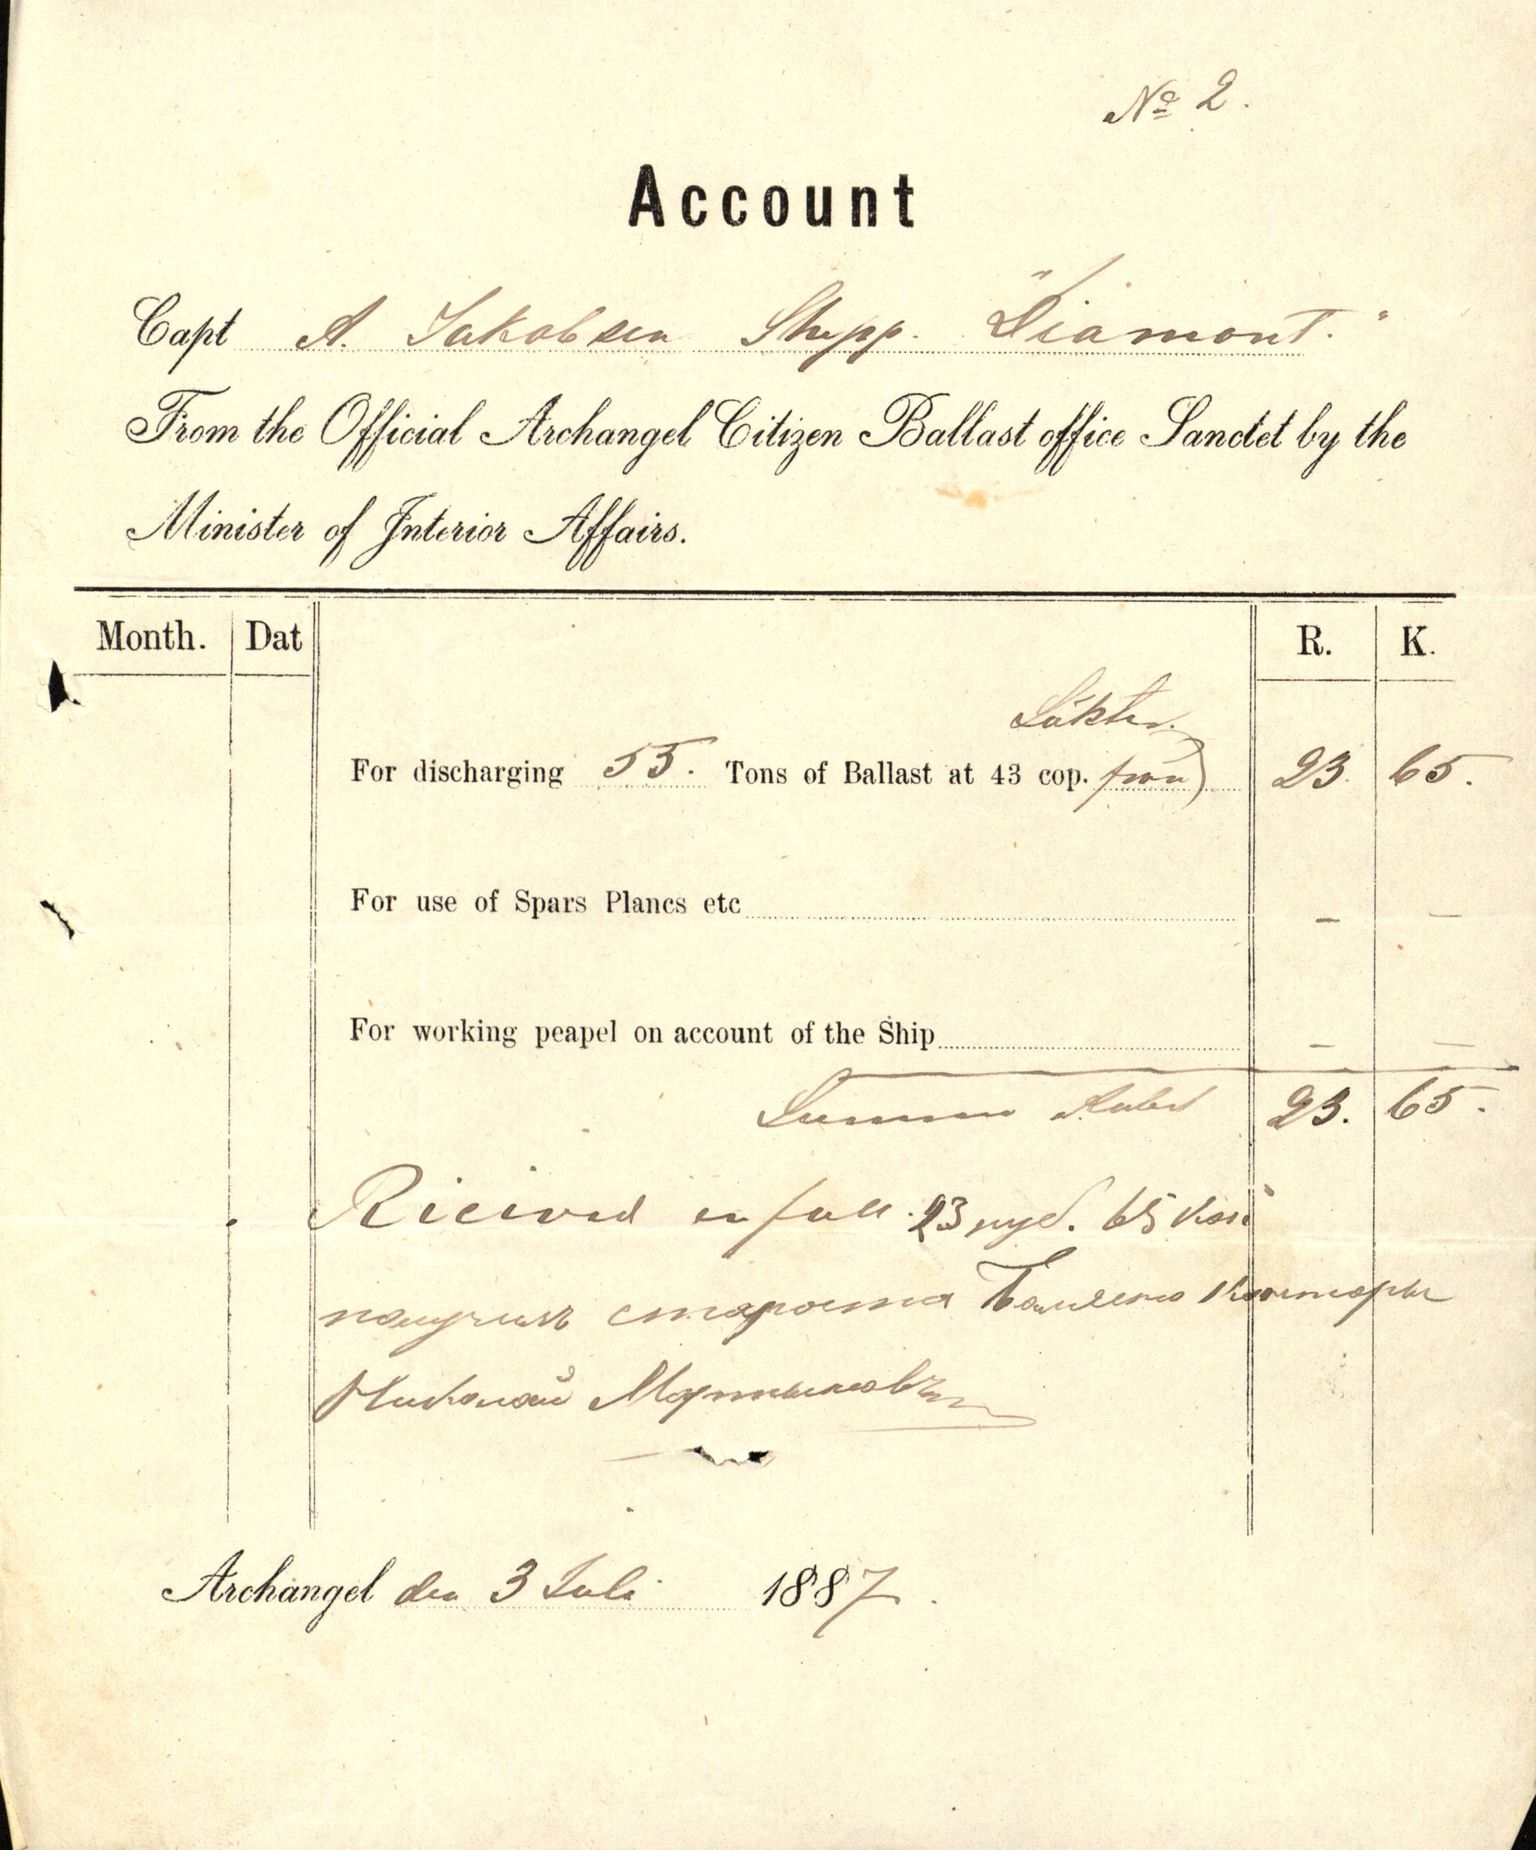 № 2.
Account
Capt A. Jakobsen Shipp. "Diamont."
From the Official Archangel Citizen Ballast office Sanctet by the
Minister of Interior Affairs.
Month. Dat R. K.
For discharging 55. Tons of Ballast at 43 cop. 23. 65.
For use of Spars Plancs etc — —
For working peapel on account of the Ship — —
Summa Rubel 23. 65.
Ricived in full 23 руб. 65 коп
получилъ староста Конторы
Николай
Archangel den 3 Juli 1887.